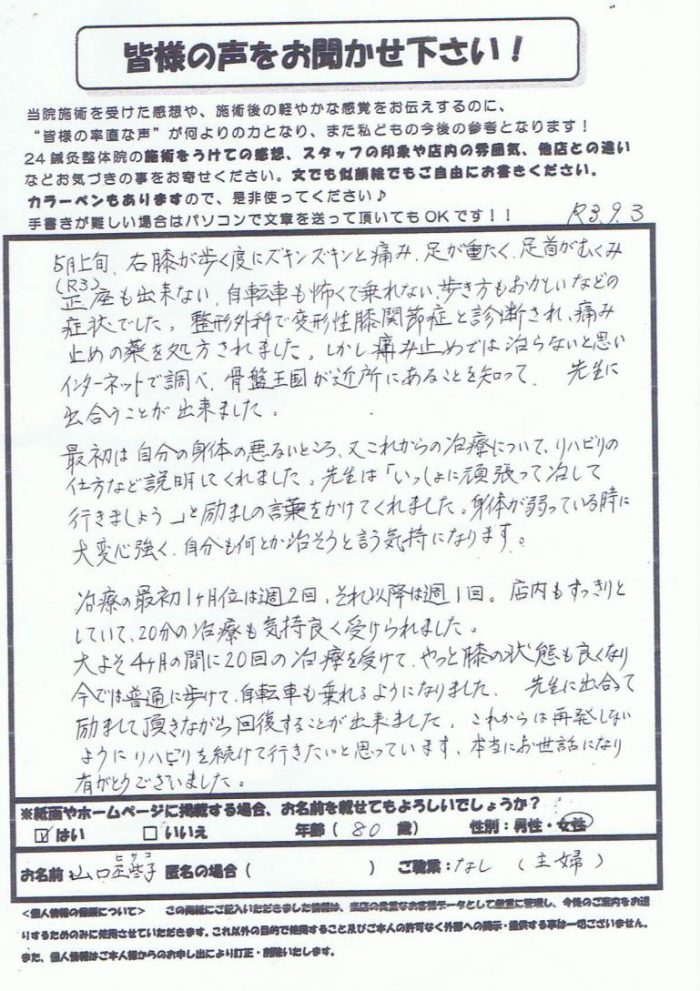 皆様の声をお聞かせ下さい！
当院施術を受けた感想や、施術後の軽やかな感覚をお伝えするのに、
“皆様の率直な声”が何よりの力となり、また私どもの今後の参考となります！
24鍼灸整体院の施術をうけての感想、スタッフの印象や店内の雰囲気、他店との違い
などお気づきの事をお寄せください。文でも似顔絵でもご自由にお書きください。
カラーペンもありますので、是非使ってください♪
手書きが難しい場合はパソコンで文章を送って頂いてもOKです！！
R3.9.3
5月上旬、右膝が歩く度にズキンズキンと痛み、足が重たく、足首がむくみ
(R3)
正座も出来ない、自転車も怖くて乗れない、歩き方もおかしいなどの
症状でした。整形外科で変形性膝関節症と診断され、痛み
止めの薬を処方されました。しかし痛み止めでは治らないと思い
インターネットで調べ、骨盤王国が近所にあることを知って、先生に
出合うことが出来ました。
最初は自分の身体の悪るいところ、又これからの治療について、リハビリの
仕方など説明してくれました。先生は「いっしょに頑張って治して
行きましょう」と励ましの言葉をかけてくれました。身体が弱っている時に
大変心強く、自分も何とか治そうと言う気持になります。
治療の最初1ヶ月位は週2回、それ以降は週1回。店内もすっきりと
していて、20分の治療も気持良く受けられました。
大よそ4ヶ月の間に20回の治療を受けて、やっと膝の状態も良くなり
今では普通に歩けて、自転車も乗れるようになりました。先生に出合って
励まして頂きながら回復することが出来ました。これからは再発しない
ようにリハビリを続けて行きたいと思っています。本当にお世話になり
有がとうございました。
※紙面やホームページに掲載する場合、お名前を載せてもよろしいでしょうか？
☑はい □いいえ 年齢（80歳） 性別：男性・女性
ヒサコ
お名前 山口 子 匿名の場合（ ） ご職業：なし（主婦）
＜個人情報の保護について＞ この用紙にご記入いただきました情報は、当店の貴重なお客様データとして厳重に管理し、今後のご案内をお送
りするためのみに使用させていただきます。これ以外の目的で使用すること及びご本人の許可なく外部への開示・提供する事は一切ございません。
また、個人情報はご本人様からのお申し出により訂正・削除いたします。